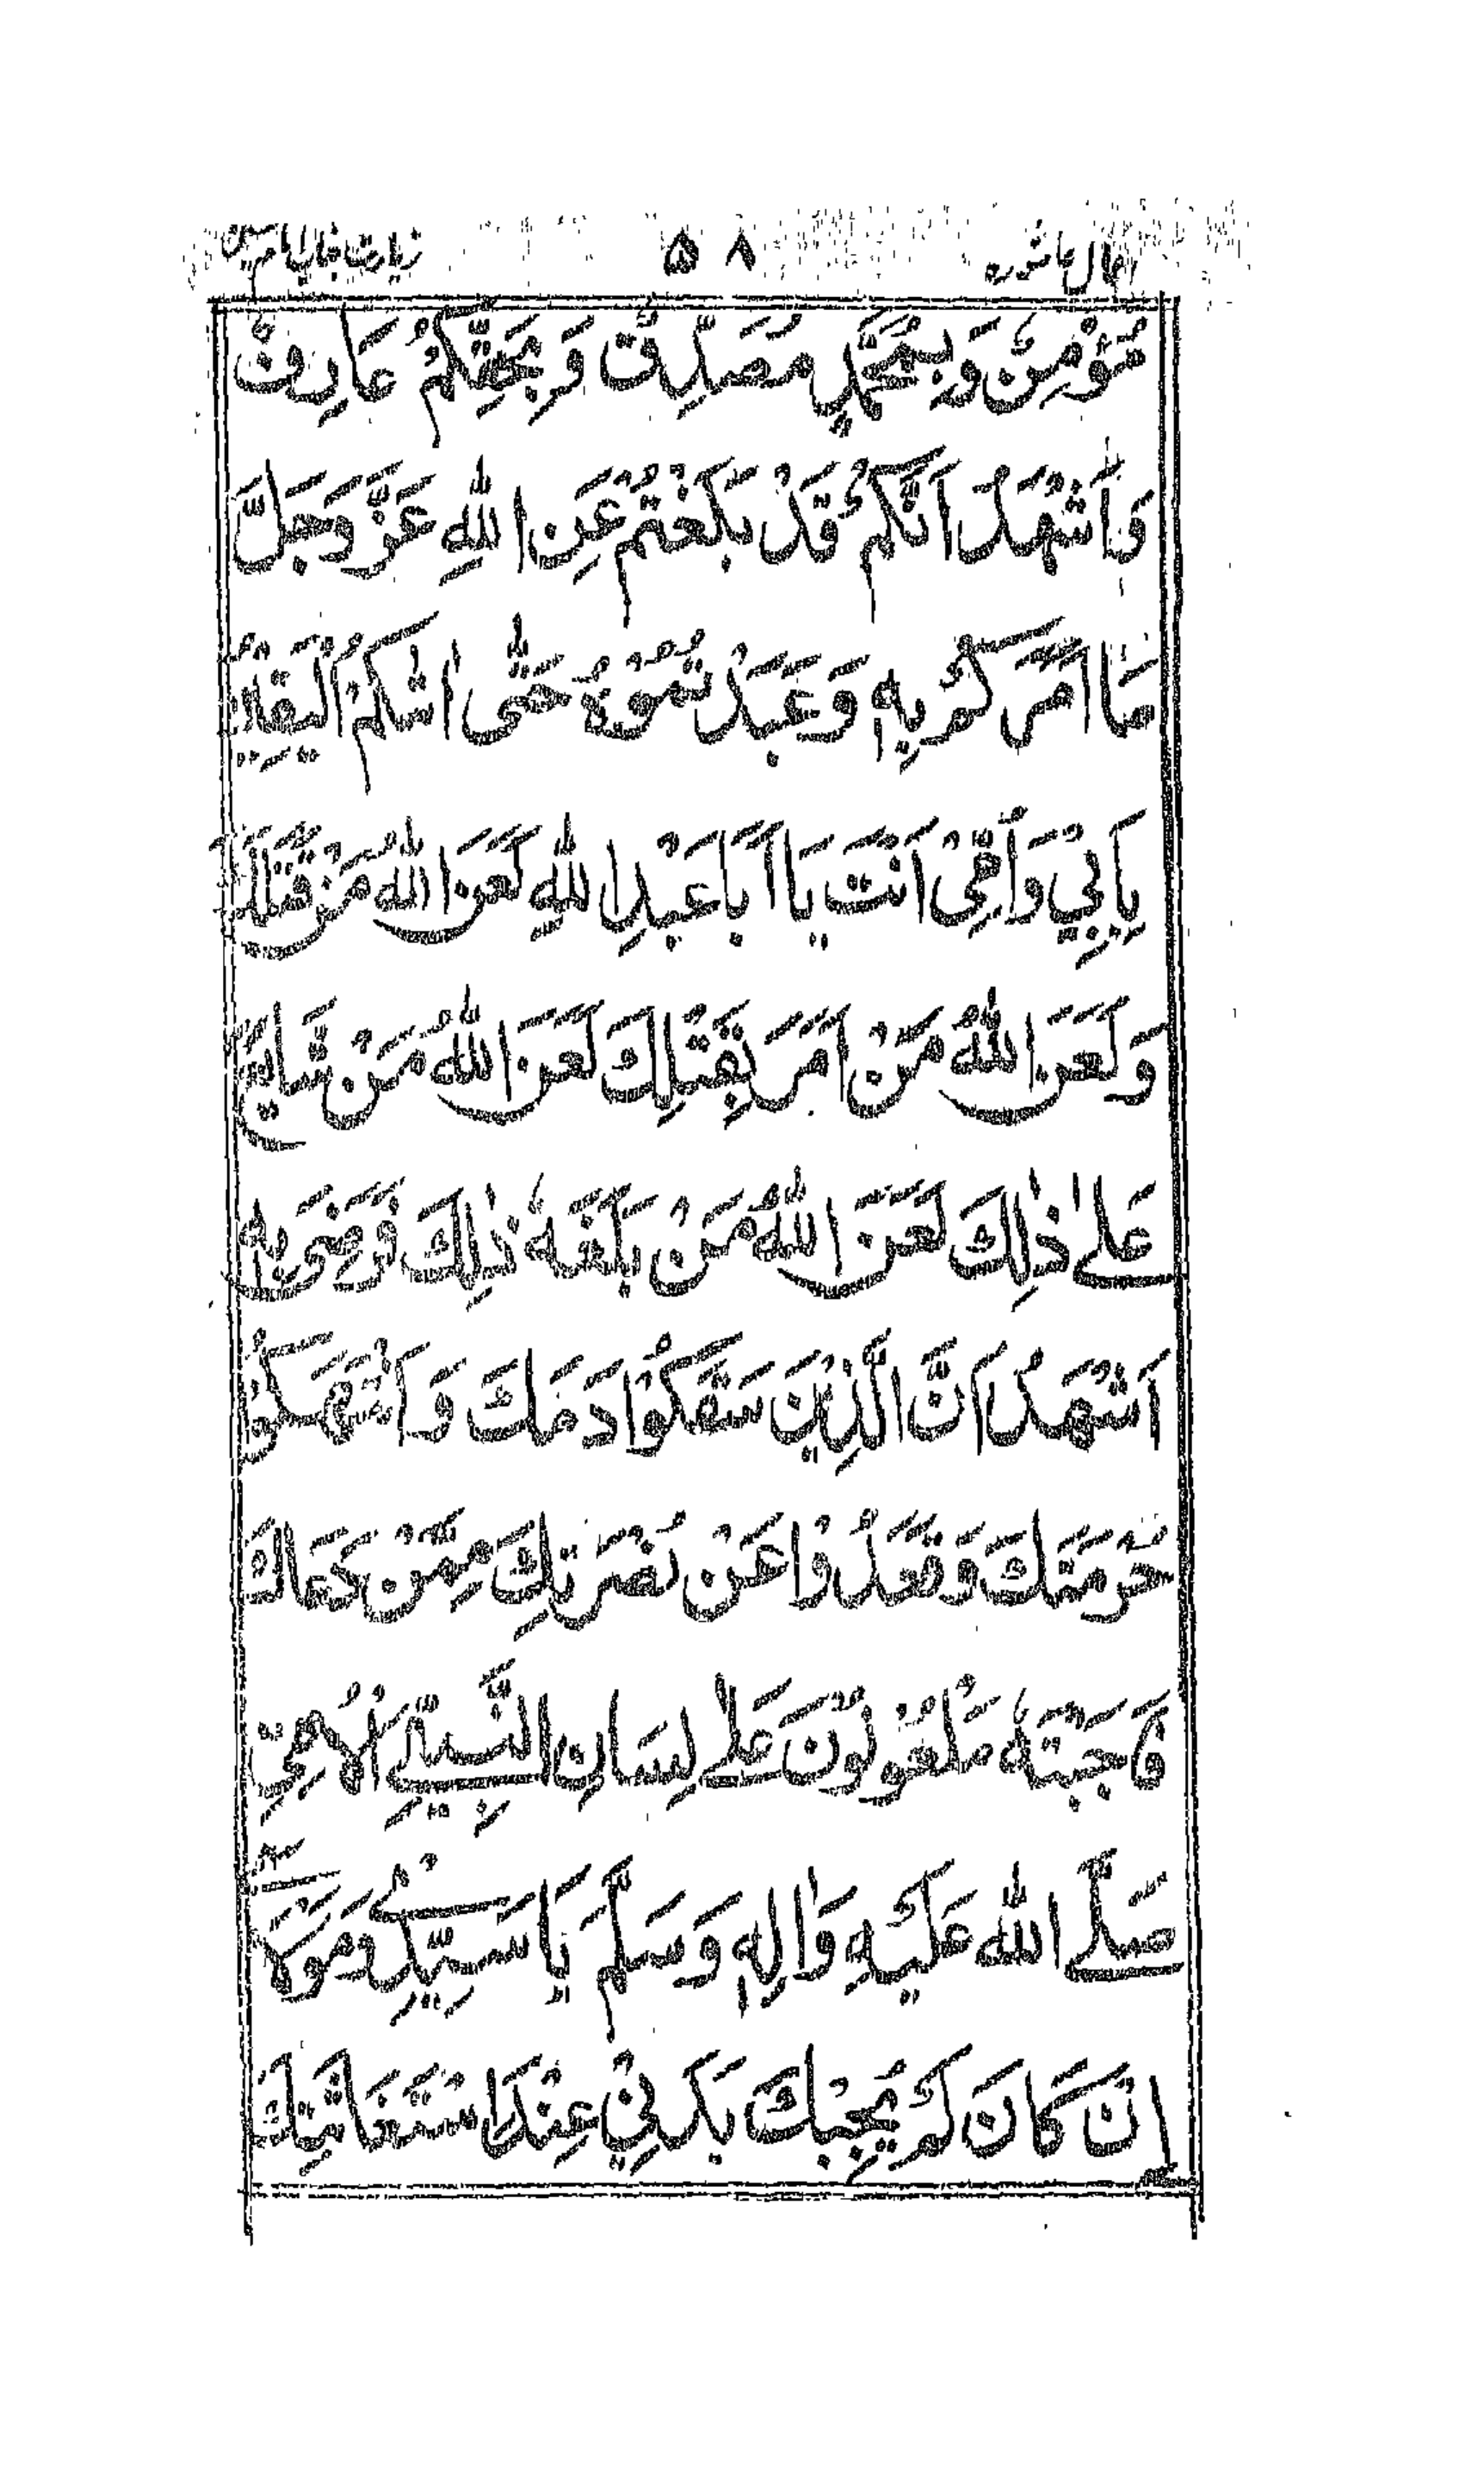 اعمال عاشوره ۵۸ زیارت جناب امام حسین
مُؤْمِنٌ وَبِمُحَمَّدٍ مُصَدِّقٌ وَبِحَقِّكُمْ عَارِفٌ
وَاَشْهَدُ اَنَّكُمْ قَدْ بَلَّغْتُمْ عَنِ اللّٰهِ عَزَّ وَجَلَّ
مَا اَمَرَكُمْ بِهٖ وَعَبَدْتُمُوْهُ حَتّٰى اَتٰىكُمُ الْيَقِيْنُ
بِاَبِيْ وَاُمِّىْ اَنْتَ يَا اَبَا عَبْدِ اللّٰهِ لَعَنَ اللّٰهُ مَنْ قَتَلَكَ
وَلَعَنَ اللّٰهُ مَنْ اَمَرَ بِقَتْلِكَ لَعَنَ اللّٰهُ مَنْ شَايَعَ
عَلٰے ذٰلِكَ لَعَنَ اللّٰهُ مَنْ بَلَغَهٗ ذٰلِكَ فَرَضِىَ بِهٖ
اَشْهَدُ اَنَّ الَّذِيْنَ سَفَكُوْا دَمَكَ وَانْتَهَكُوْا
حُرْمَتَكَ وَقَعَدُوْا عَنْ نُصْرَتِكَ مِمَّنْ دَعَاكَ
فَاَجَبْتَهٗ مَلْعُوْنُوْنَ عَلٰے لِسَانِ النَّبِيِّ الْاُمِّيِّ
صَلَّے اللّٰهُ عَلَيْهِ وَاٰلِهٖ وَسَلَّمَ يَا سَيِّدِيْ وَمَوْلَایَ
اِنْ كَانَ لَمْ يُجِبْكَ بَدَنِيْ عِنْدَ اسْتِغَاثَتِكَ